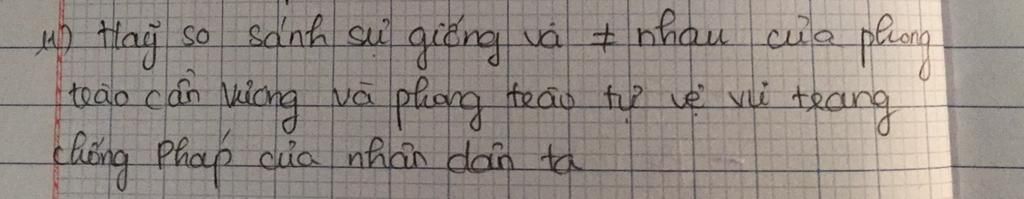 4) Hãy so sánh sự giống và ≠ nhau của phong
trào cần vương và phong trào tự vệ vũ trang
chống Pháp của nhân dân ta